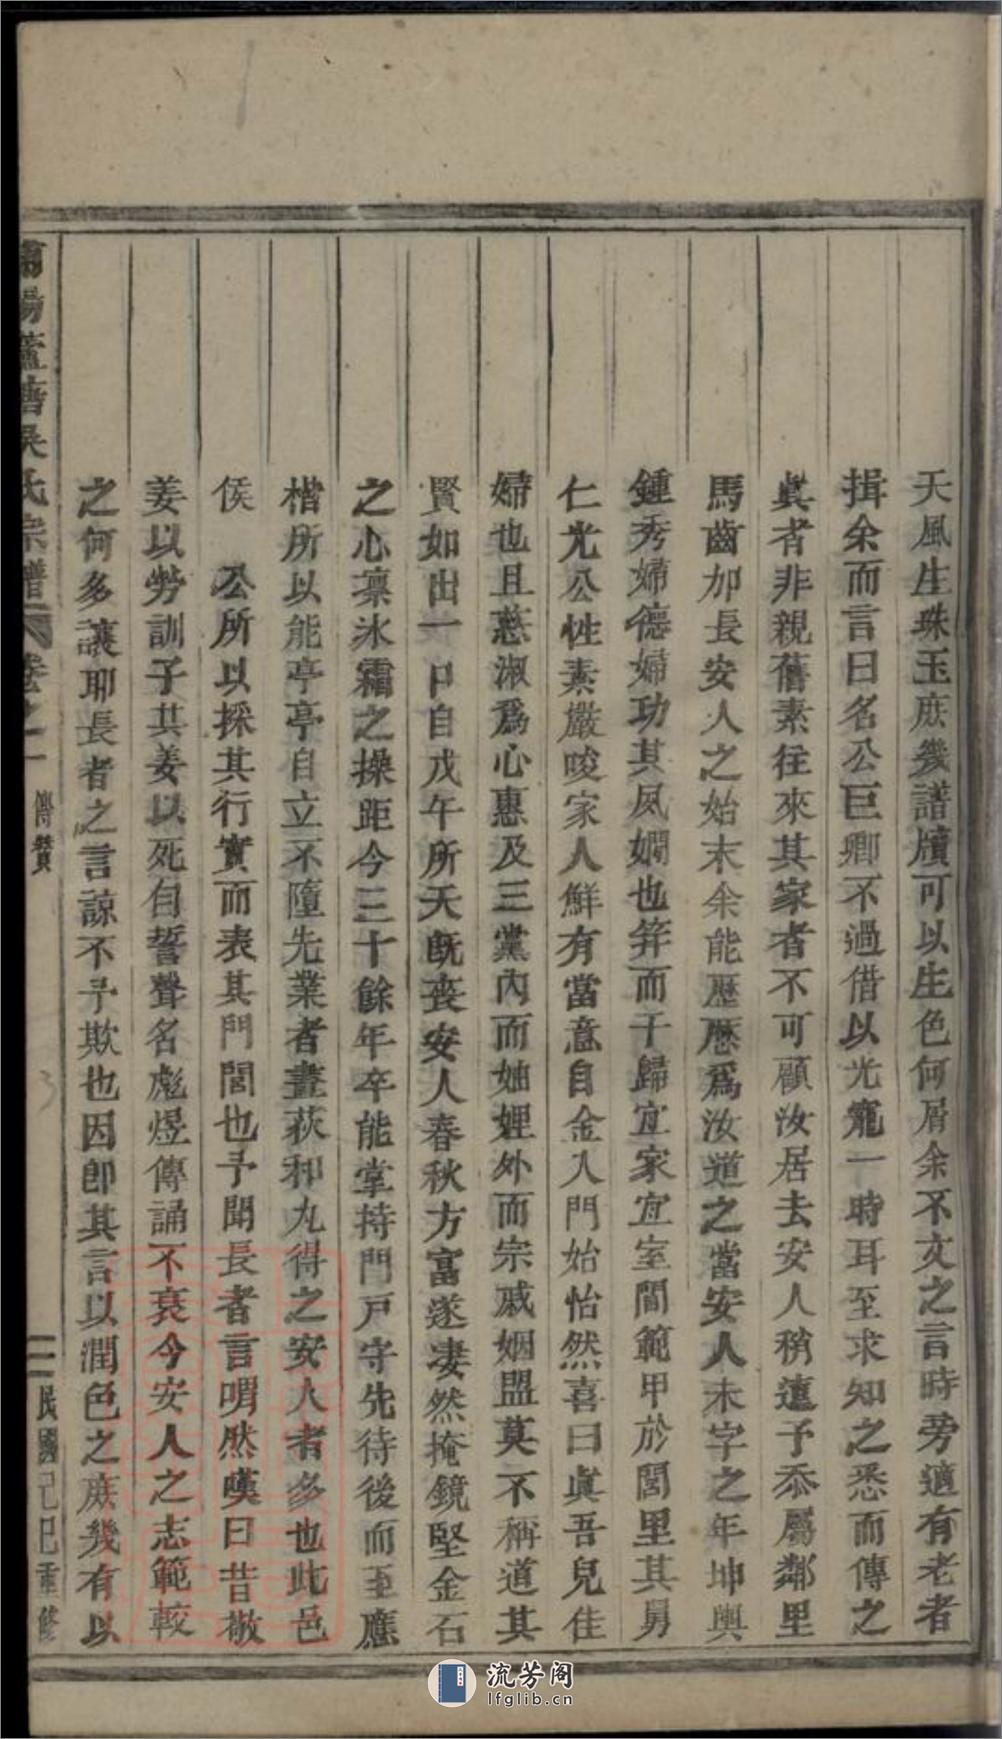 天風生珠玉庶幾譜牘可以生色何屑余不文之言時旁適有老者
揖余而言曰名公巨卿不過借以光寵一時耳至求知之悉而傳之
眞者非親舊素往來其家者不可顧汝居去安人稍遠予忝屬鄰里
馬齒加長安人之始末余能歷歷爲汝道之當安人未字之年坤輿
鍾秀婦德婦功其夙嫻也筓而于歸宜家宜室閫範甲於閭里其舅
仁光公性素嚴峻家人鮮有當意自金入門始怡然喜曰眞吾兒佳
婦也且慈淑爲心惠及三黨內而妯娌外而宗戚姻盟莫不稱道其
賢如出一口自戊午所天旣喪安人春秋方富遂凄然掩鏡堅金石
之心禀冰霜之操距今三十餘年卒能掌持門戸守先待後而至應
楷所以能亭亭自立不隳先業者畫荻和丸得之安人者多也此邑
侯 公所以採其行實而表其門閭也予聞長者言喟然嘆曰昔敬
姜以勞訓子共姜以死自誓聲名彪煜傳誦不衰今安人之志範較
之何多讓耶長者之言諒不予欺也因卽其言以潤色之庶幾有以
陽蘆塘吳氏宗譜 卷之一 傳贊 二 民國己巳重修
流芳阁
lfglib.cn